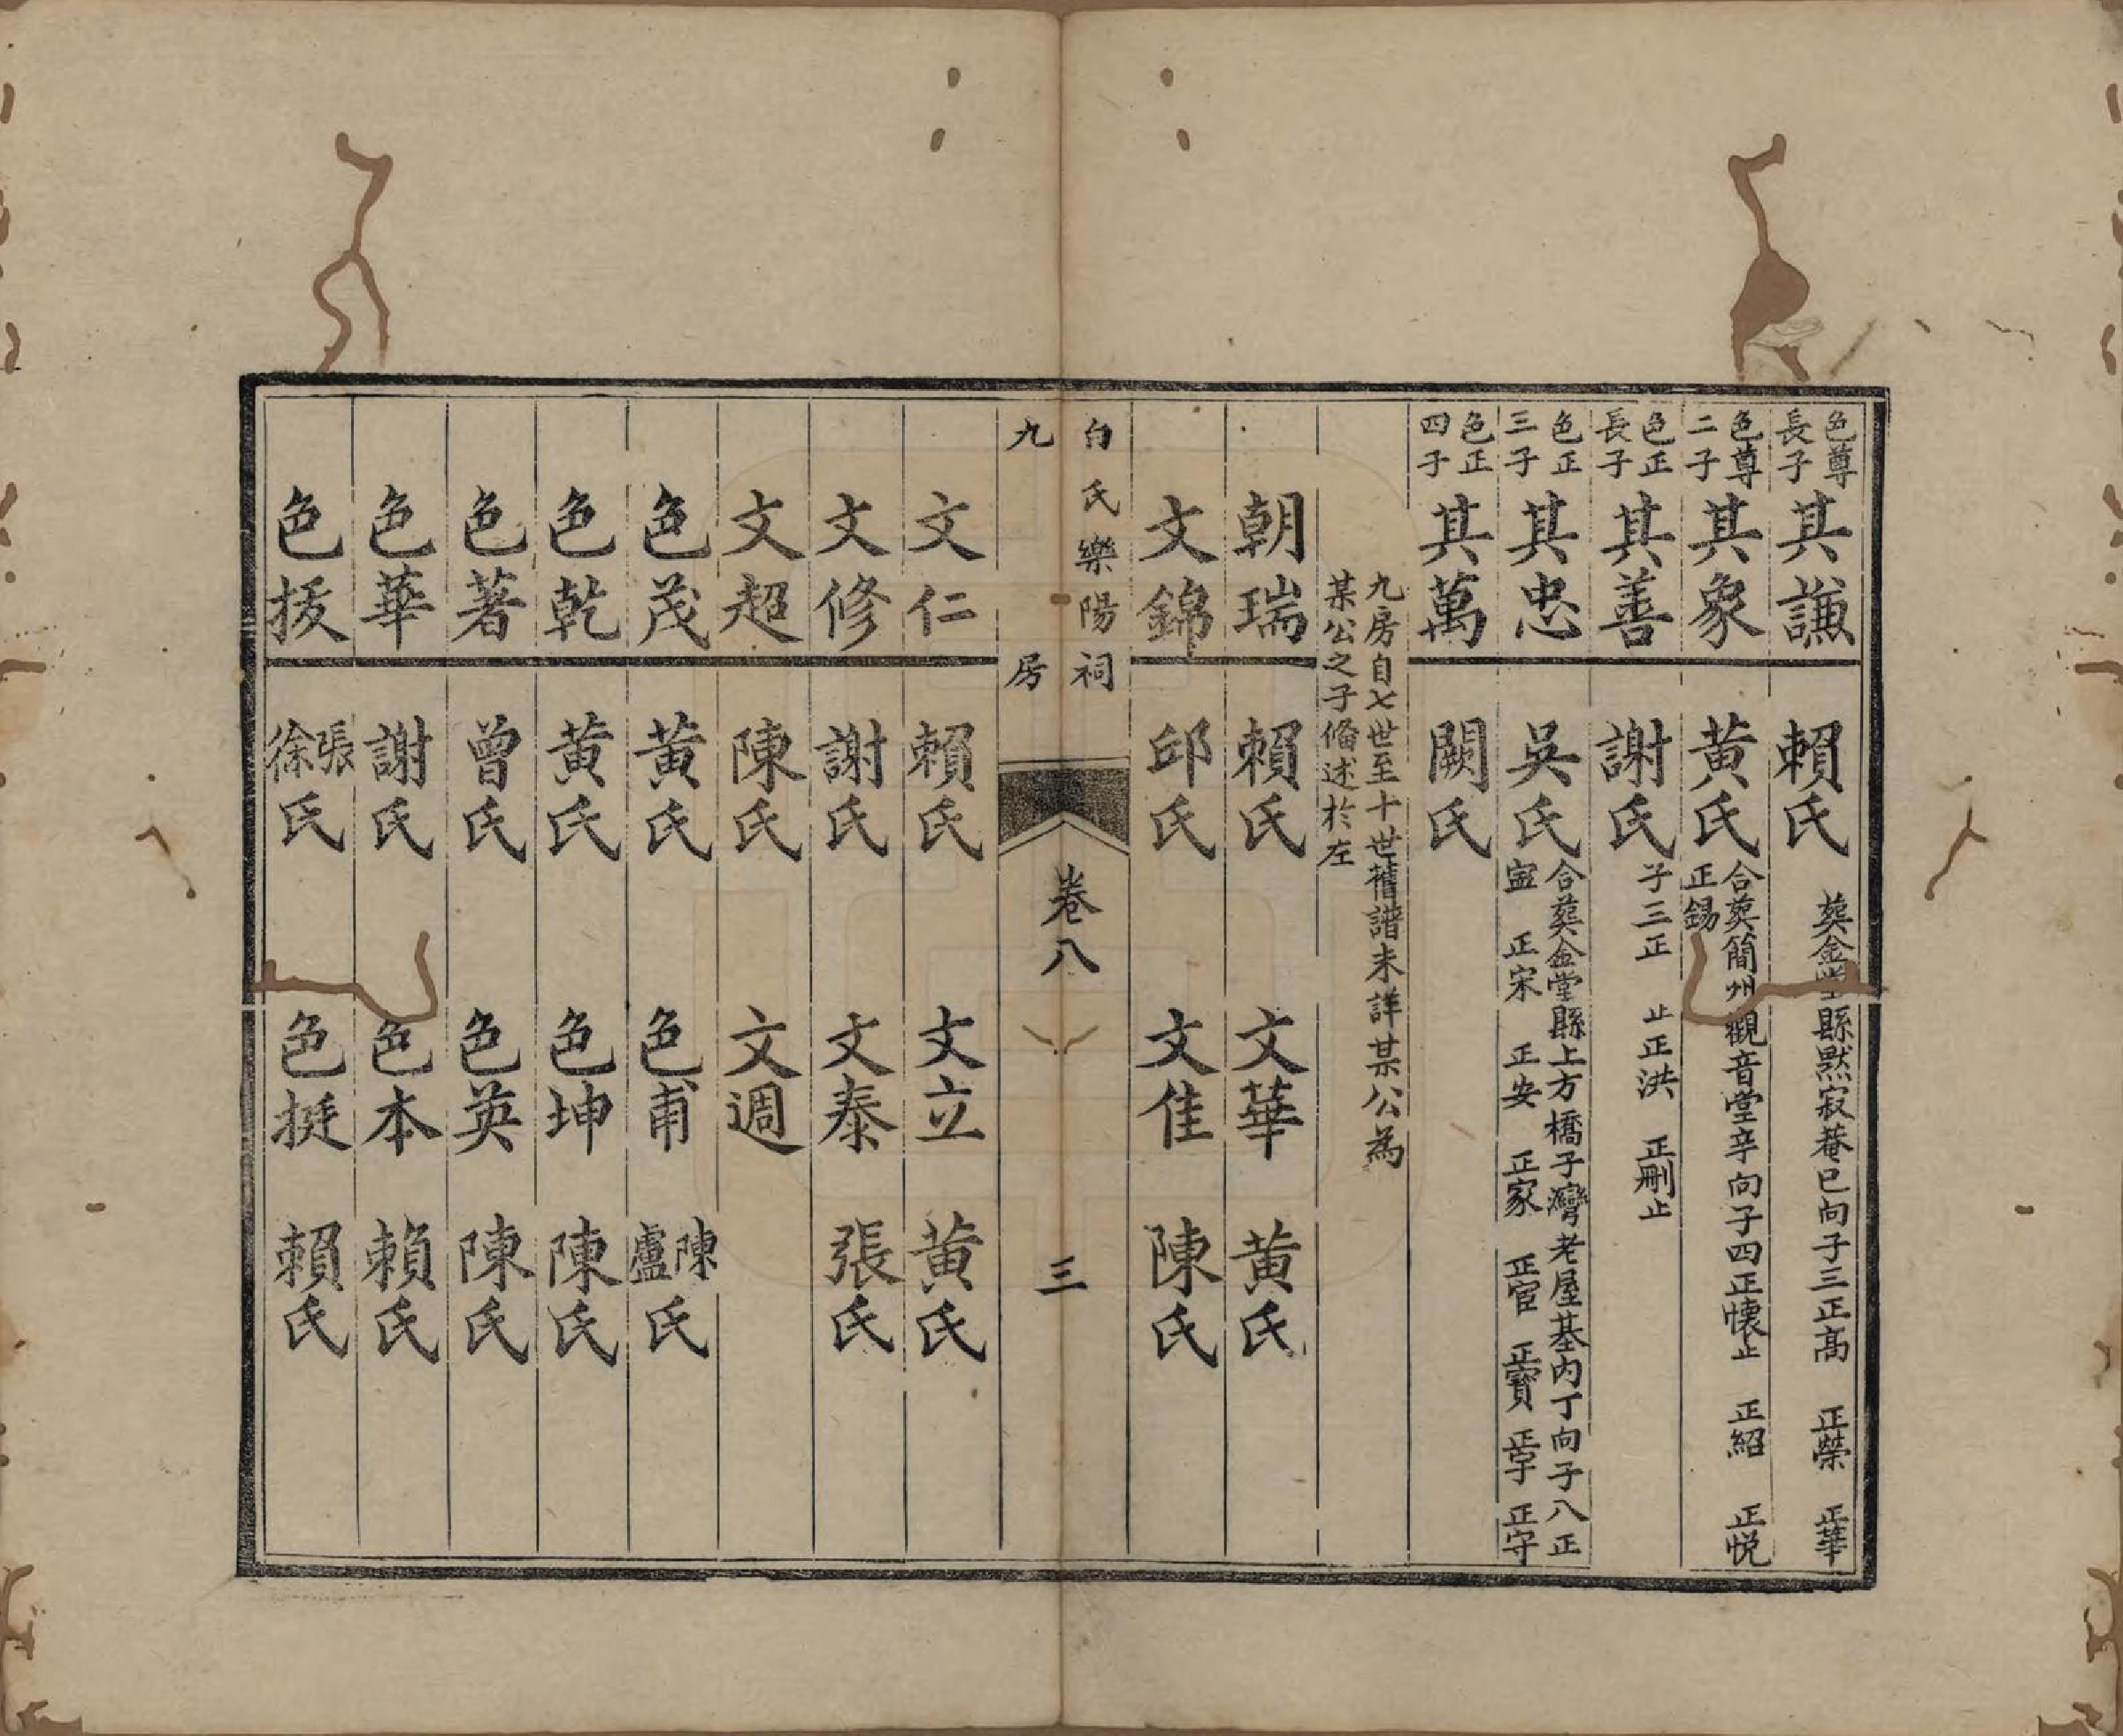 色尊長子 其謙 賴氏 葬金堂縣默寂菴巳向子三正高 正榮 正華
色尊二子 其象 黃氏 合葬簡州觀音堂辛向子四正懐止 正紹 正悅 正錫
色正長子 其善 謝氏 子三正 止正洪 正刪止
色正三子 其忠 吳氏 合葬金堂縣上方橋子灣老屋基內丁向子八正寍 正宋 正安 正家 正官 正寶 正字 正守
色正四子 其萬 闕氏
九房自七世至十世舊譜未詳某公為
某公之子俻述於左
朝瑞 賴氏 文華 黃氏
文錦 邱氏 文佳 陳氏
白氏樂陽祠
九房
卷八
三
文仁 賴氏 文立 黃氏
文修 謝氏 文泰 張氏
文超 陳氏 文週
色茂 黃氏 色甫 陳盧氏
色乾 黃氏 色坤 陳氏
色著 曾氏 色英 陳氏
色華 謝氏 色本 賴氏
色援 張徐氏 色挺 賴氏